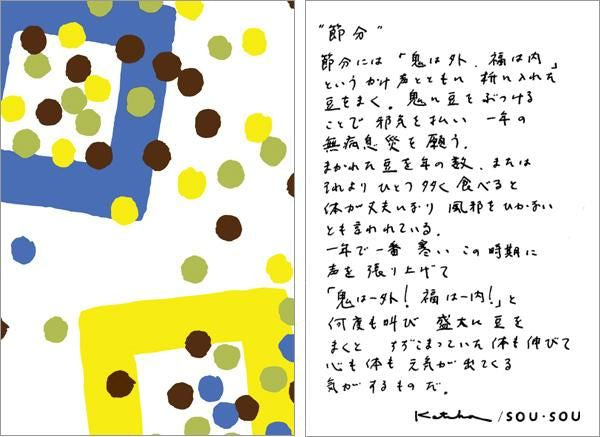 "節分"
節分には「鬼は外、福は内」
というかけ声とともに 枡に入れた
豆をまく。鬼に豆をぶつける
ことで 邪気を払い 一年の
無病息災を願う。
まかれた豆を年の数、または
それより ひとつ多く食べると
体が丈夫になり 風邪をひかない
とも言われている。
一年で一番 寒い この時期に
声を張り上げて
「鬼はー外!福はー内!」と
何度も叫び 盛大に豆を
まくと ちぢこまっていた体も伸びて
心も体も 元気が出てくる
気がするものだ。
Katsuka/SOU・SOU